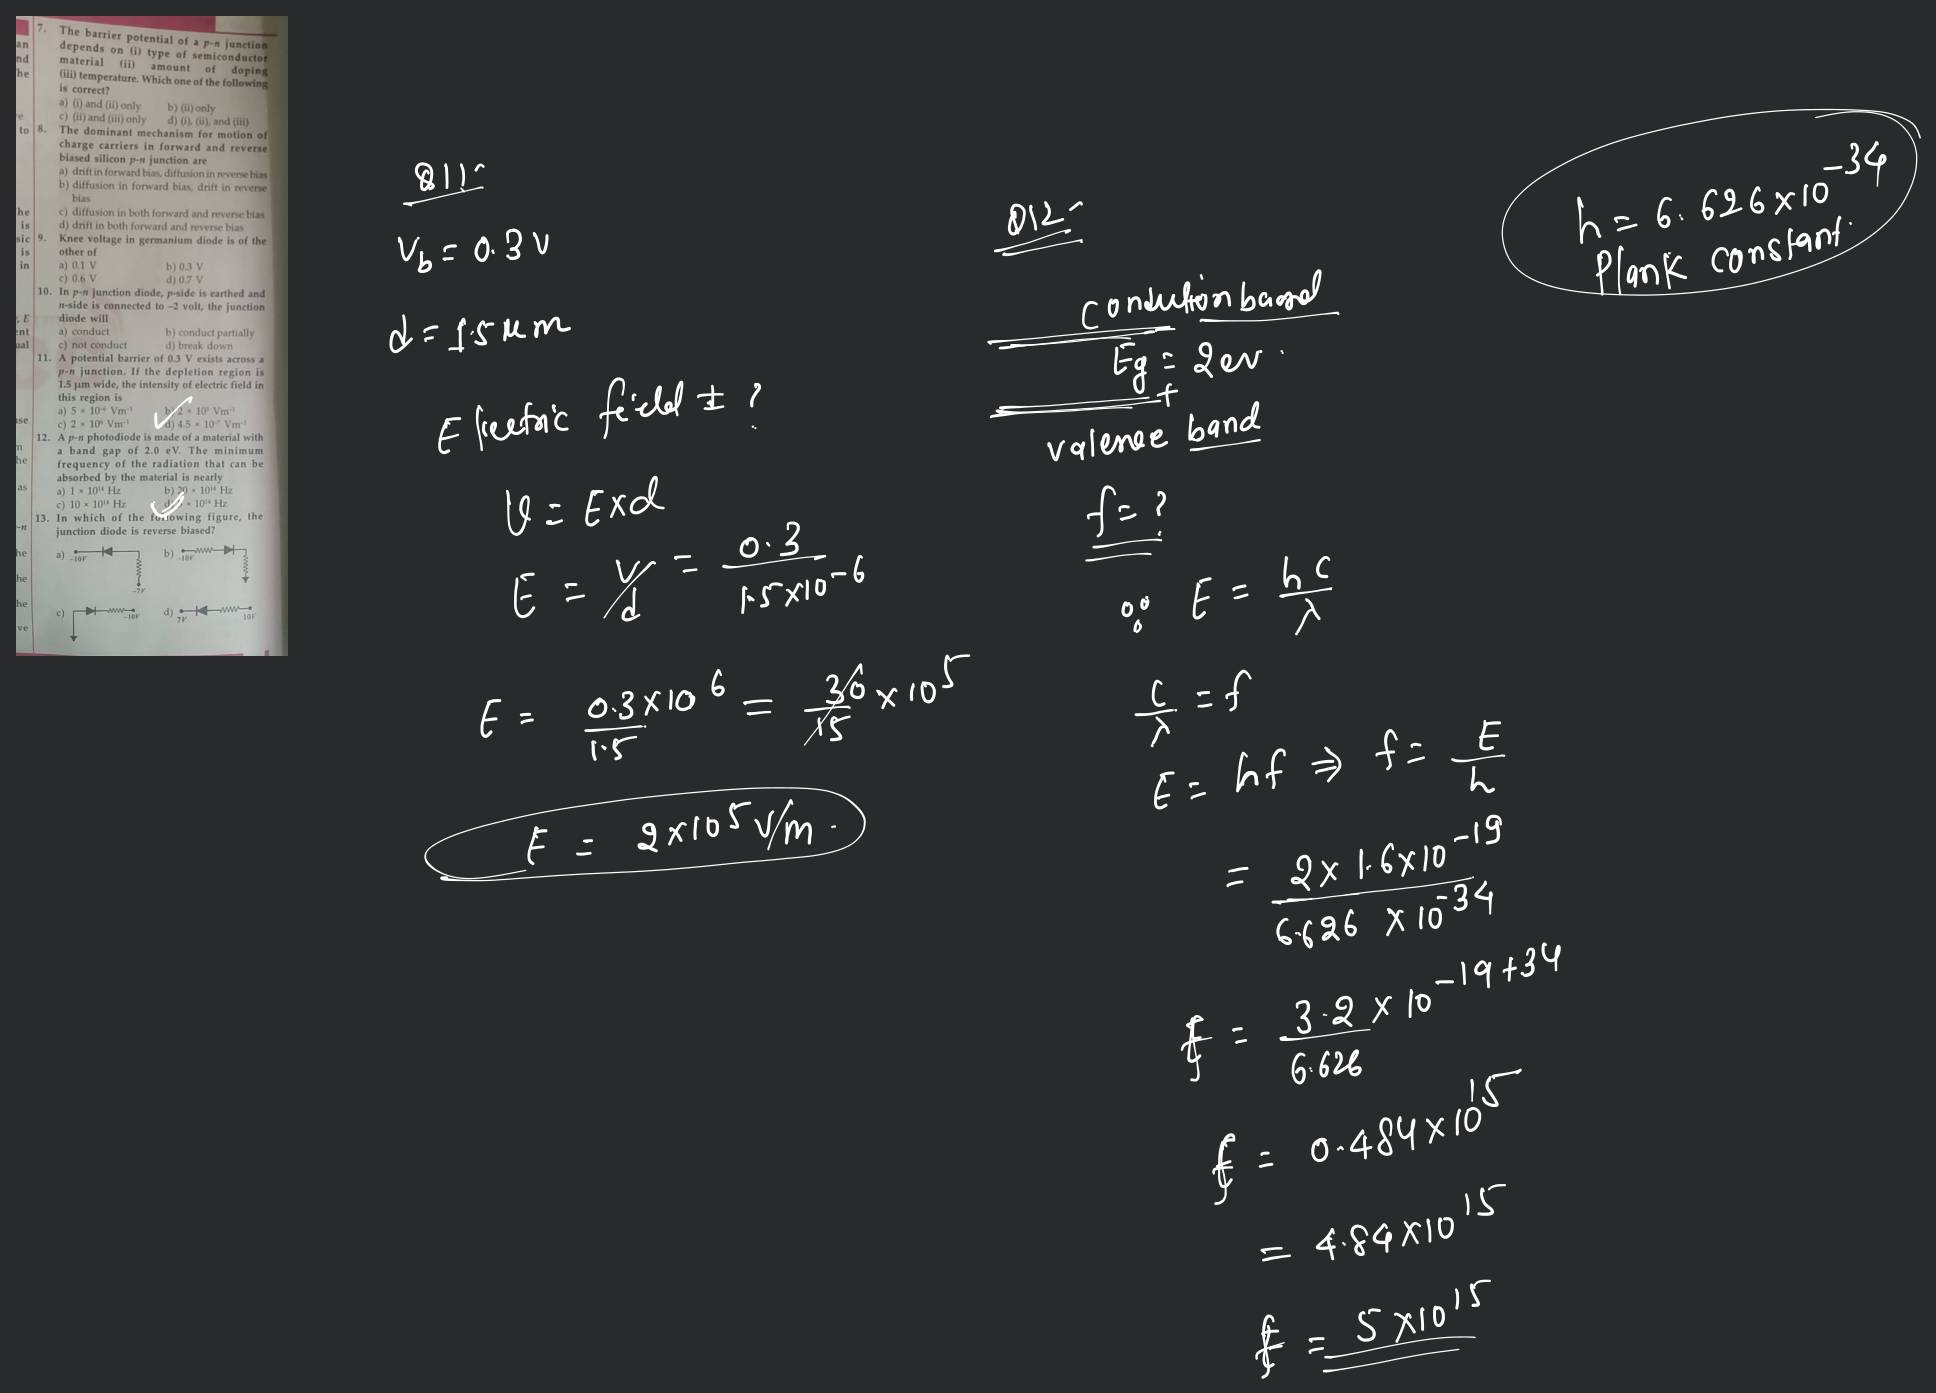 7. The barrier potential of a p-n junction
depends on (i) type of semiconductor
material (ii) amount of doping
(iii) temperature. Which one of the following
is correct?
a) (i) and (ii) only b) (ii) only
c) (ii) and (iii) only d) (i), (ii), and (iii)
8. The dominant mechanism for motion of
charge carriers in forward and reverse
biased silicon p-n junction are
a) drift in forward bias, diffusion in reverse bias
b) diffusion in forward bias, drift in reverse
bias
c) diffusion in both forward and reverse bias
d) drift in both forward and reverse bias
9. Knee voltage in germanium diode is of the
other of
a) 0.1 V b) 0.3 V
c) 0.6 V d) 0.7 V
10. In p-n junction diode, p-side is earthed and
n-side is connected to -2 volt, the junction
diode will
a) conduct b) conduct partially
c) not conduct d) break down
11. A potential barrier of 0.3 V exists across a
p-n junction. If the depletion region is
1.5 μm wide, the intensity of electric field in
this region is
a) 5 × 10⁻⁶ Vm⁻¹ b) 2 × 10⁵ Vm⁻¹
c) 2 × 10⁶ Vm⁻¹ d) 4.5 × 10⁻⁷ Vm⁻¹
12. A p-n photodiode is made of a material with
a band gap of 2.0 eV. The minimum
frequency of the radiation that can be
absorbed by the material is nearly
a) 1 × 10¹⁴ Hz b) 20 × 10¹⁴ Hz
c) 10 × 10¹⁴ Hz d) × 10¹⁴ Hz
13. In which of the following figure, the
junction diode is reverse biased?
a) -10V
-7V
b) -10V
c) -10V
d) 7V 10V
Q11-
Vb = 0.3 V
d = 1.5 μm
Electric field ± ?
V = E×d
E = V/d = 0.3 / 1.5×10-6
E = 0.3×10⁶ / 1.5 = 30/15 × 10⁵
E = 2×10⁵ V/m.
Q12-
Condution band
Eg = 2ev.
valence band
f = ?
∵ E = hc/λ
c/λ = f
E = hf ⇒ f = E/h
= 2×1.6×10⁻¹⁹ / 6.626 × 10⁻³⁴
f = 3.2 × 10⁻¹⁹⁺³⁴ / 6.626
f = 0.484×10¹⁵
= 4.84×10¹⁵
f = 5×10¹⁵
h = 6.626×10⁻³⁴
Plank constant.